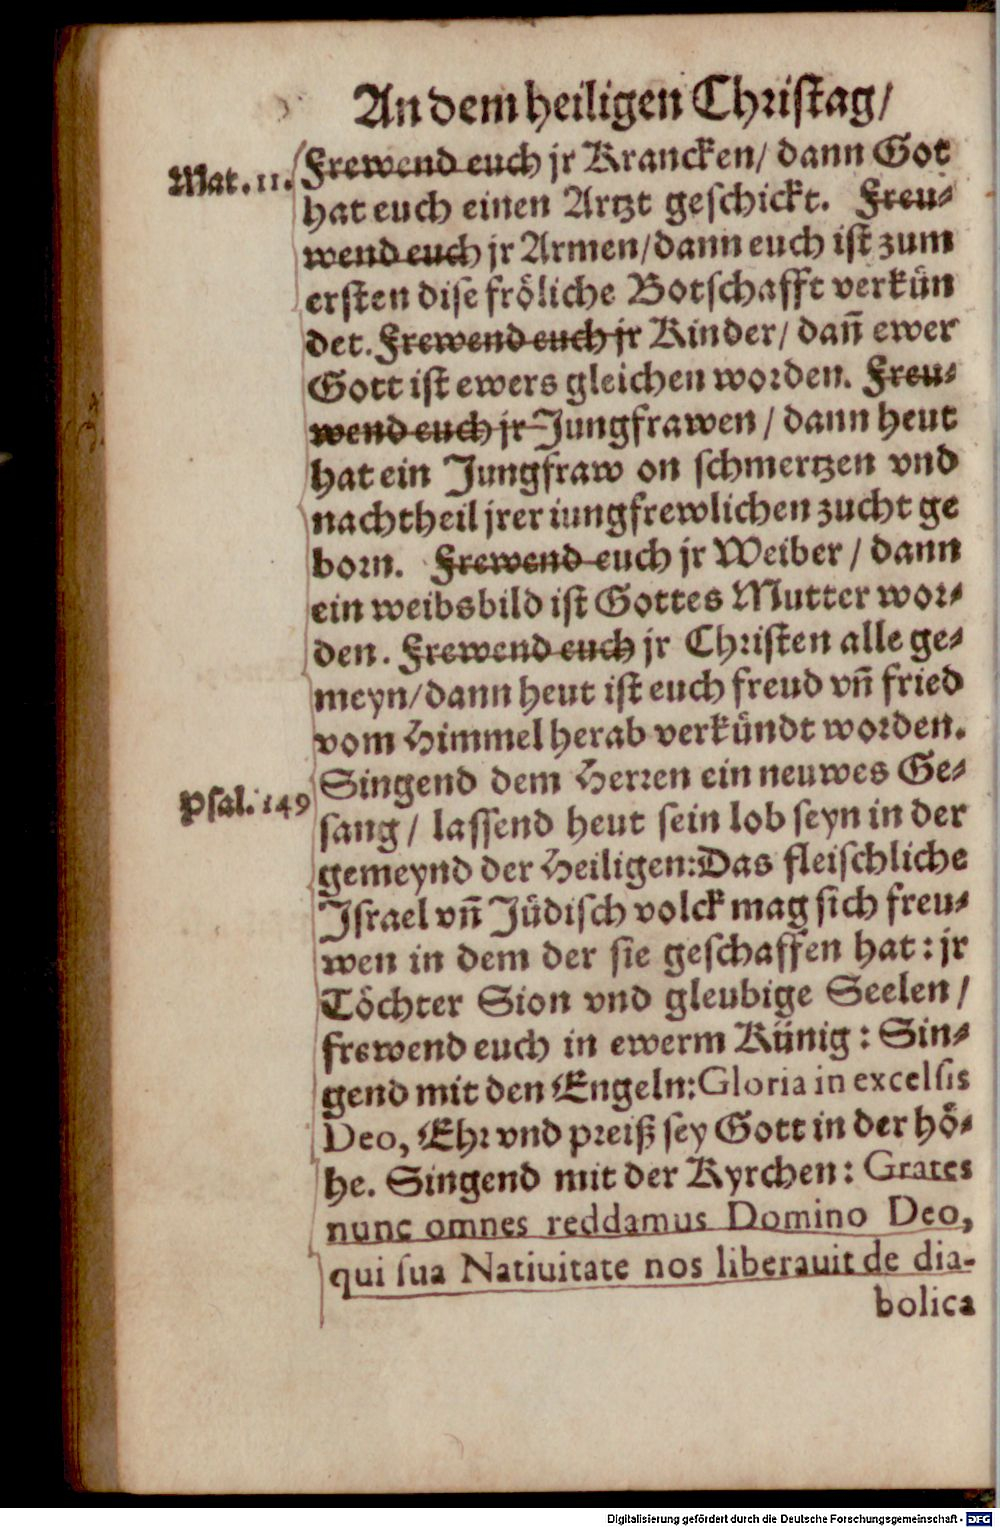 An dem heiligen Christag/
Mat. 11.
Frewend euch jr Krancken/ dann Got
hat euch einen Artzt geschickt. Freu-
wend euch jr Armen/dann euch ist zum
ersten dise fröliche Botschafft verkün
det. Frewend euch jr Kinder/ dañ ewer
Gott ist ewers gleichen worden. Freu-
wend euch jr Jungfrawen / dann heut
hat ein Jungfraw on schmertzen vnd
nachtheil jrer iungfrewlichen zucht ge
born. Frewend euch jr Weiber / dann
ein weibsbild ist Gottes Mutter wor-
den. Frewend euch jr Christen alle ge-
meyn/dann heut ist euch freud vñ fried
vom Himmel herab verkündt worden.
Psal. 149
Singend dem Herren ein neuwes Ge-
sang / lassend heut sein lob seyn in der
gemeynd der Heiligen: Das fleischliche
Israel vñ Jüdisch volck mag sich freu-
wen in dem der sie geschaffen hat: jr
Töchter Sion vnd gleubige Seelen /
frewend euch in ewerm Künig: Sin-
gend mit den Engeln: Gloria in excelsis
Deo, Ehr vnd preiß sey Gott in der hö-
he. Singend mit der Kyrchen: Grates
nunc omnes reddamus Domino Deo,
qui sua Natiuitate nos liberauit de dia-
bolica
Digitalisierung gefördert durch die Deutsche Forschungsgemeinschaft - DFG